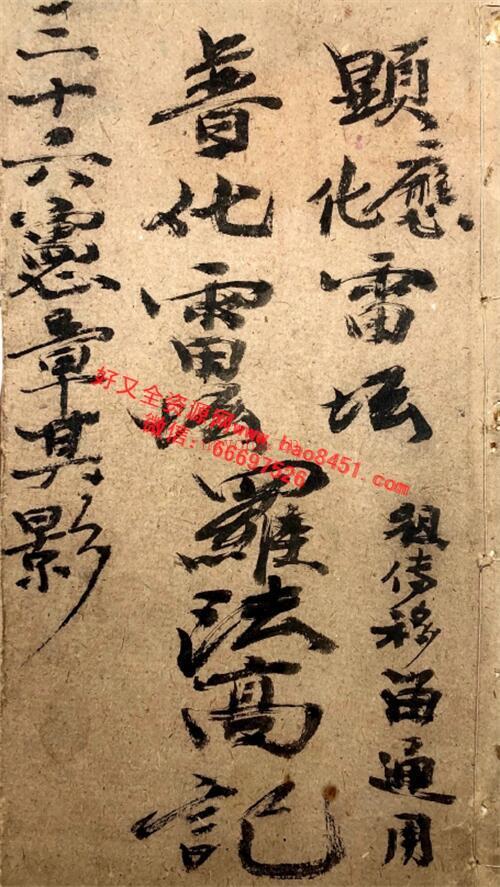 顕應化雷坛
祖传移畄通用
普化雷坛羅法高記
三十六憲章其影
好又全资源网www.hao8451.com
微信：66697526